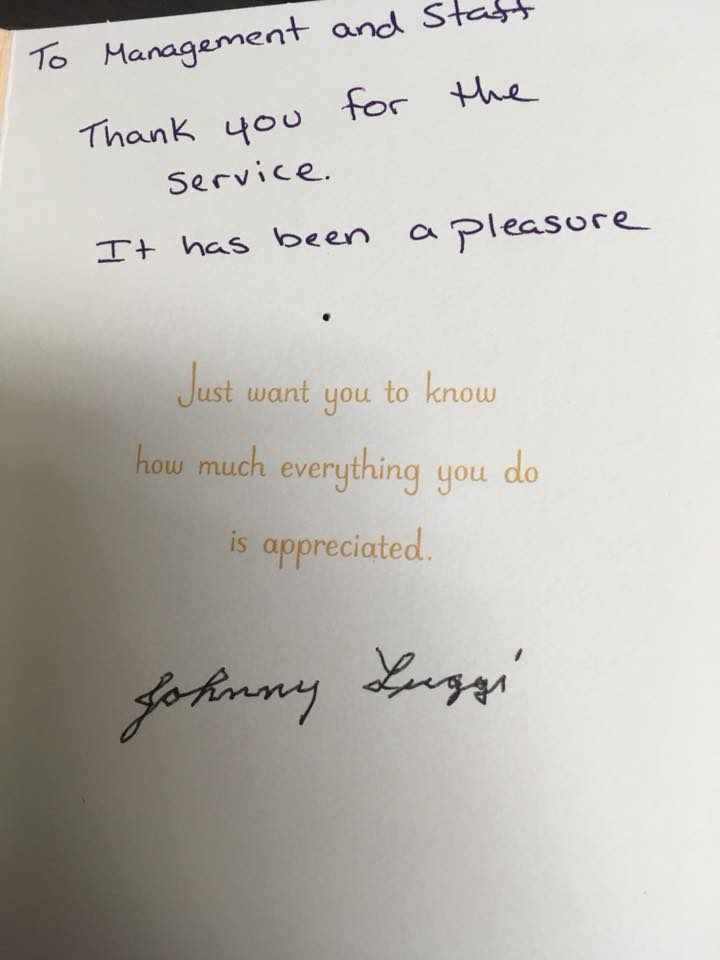 To Management and Staff
Thank you for the
service.
It has been a pleasure
Just want you to know
how much everything you do
is appreciated.
Johnny Luggi